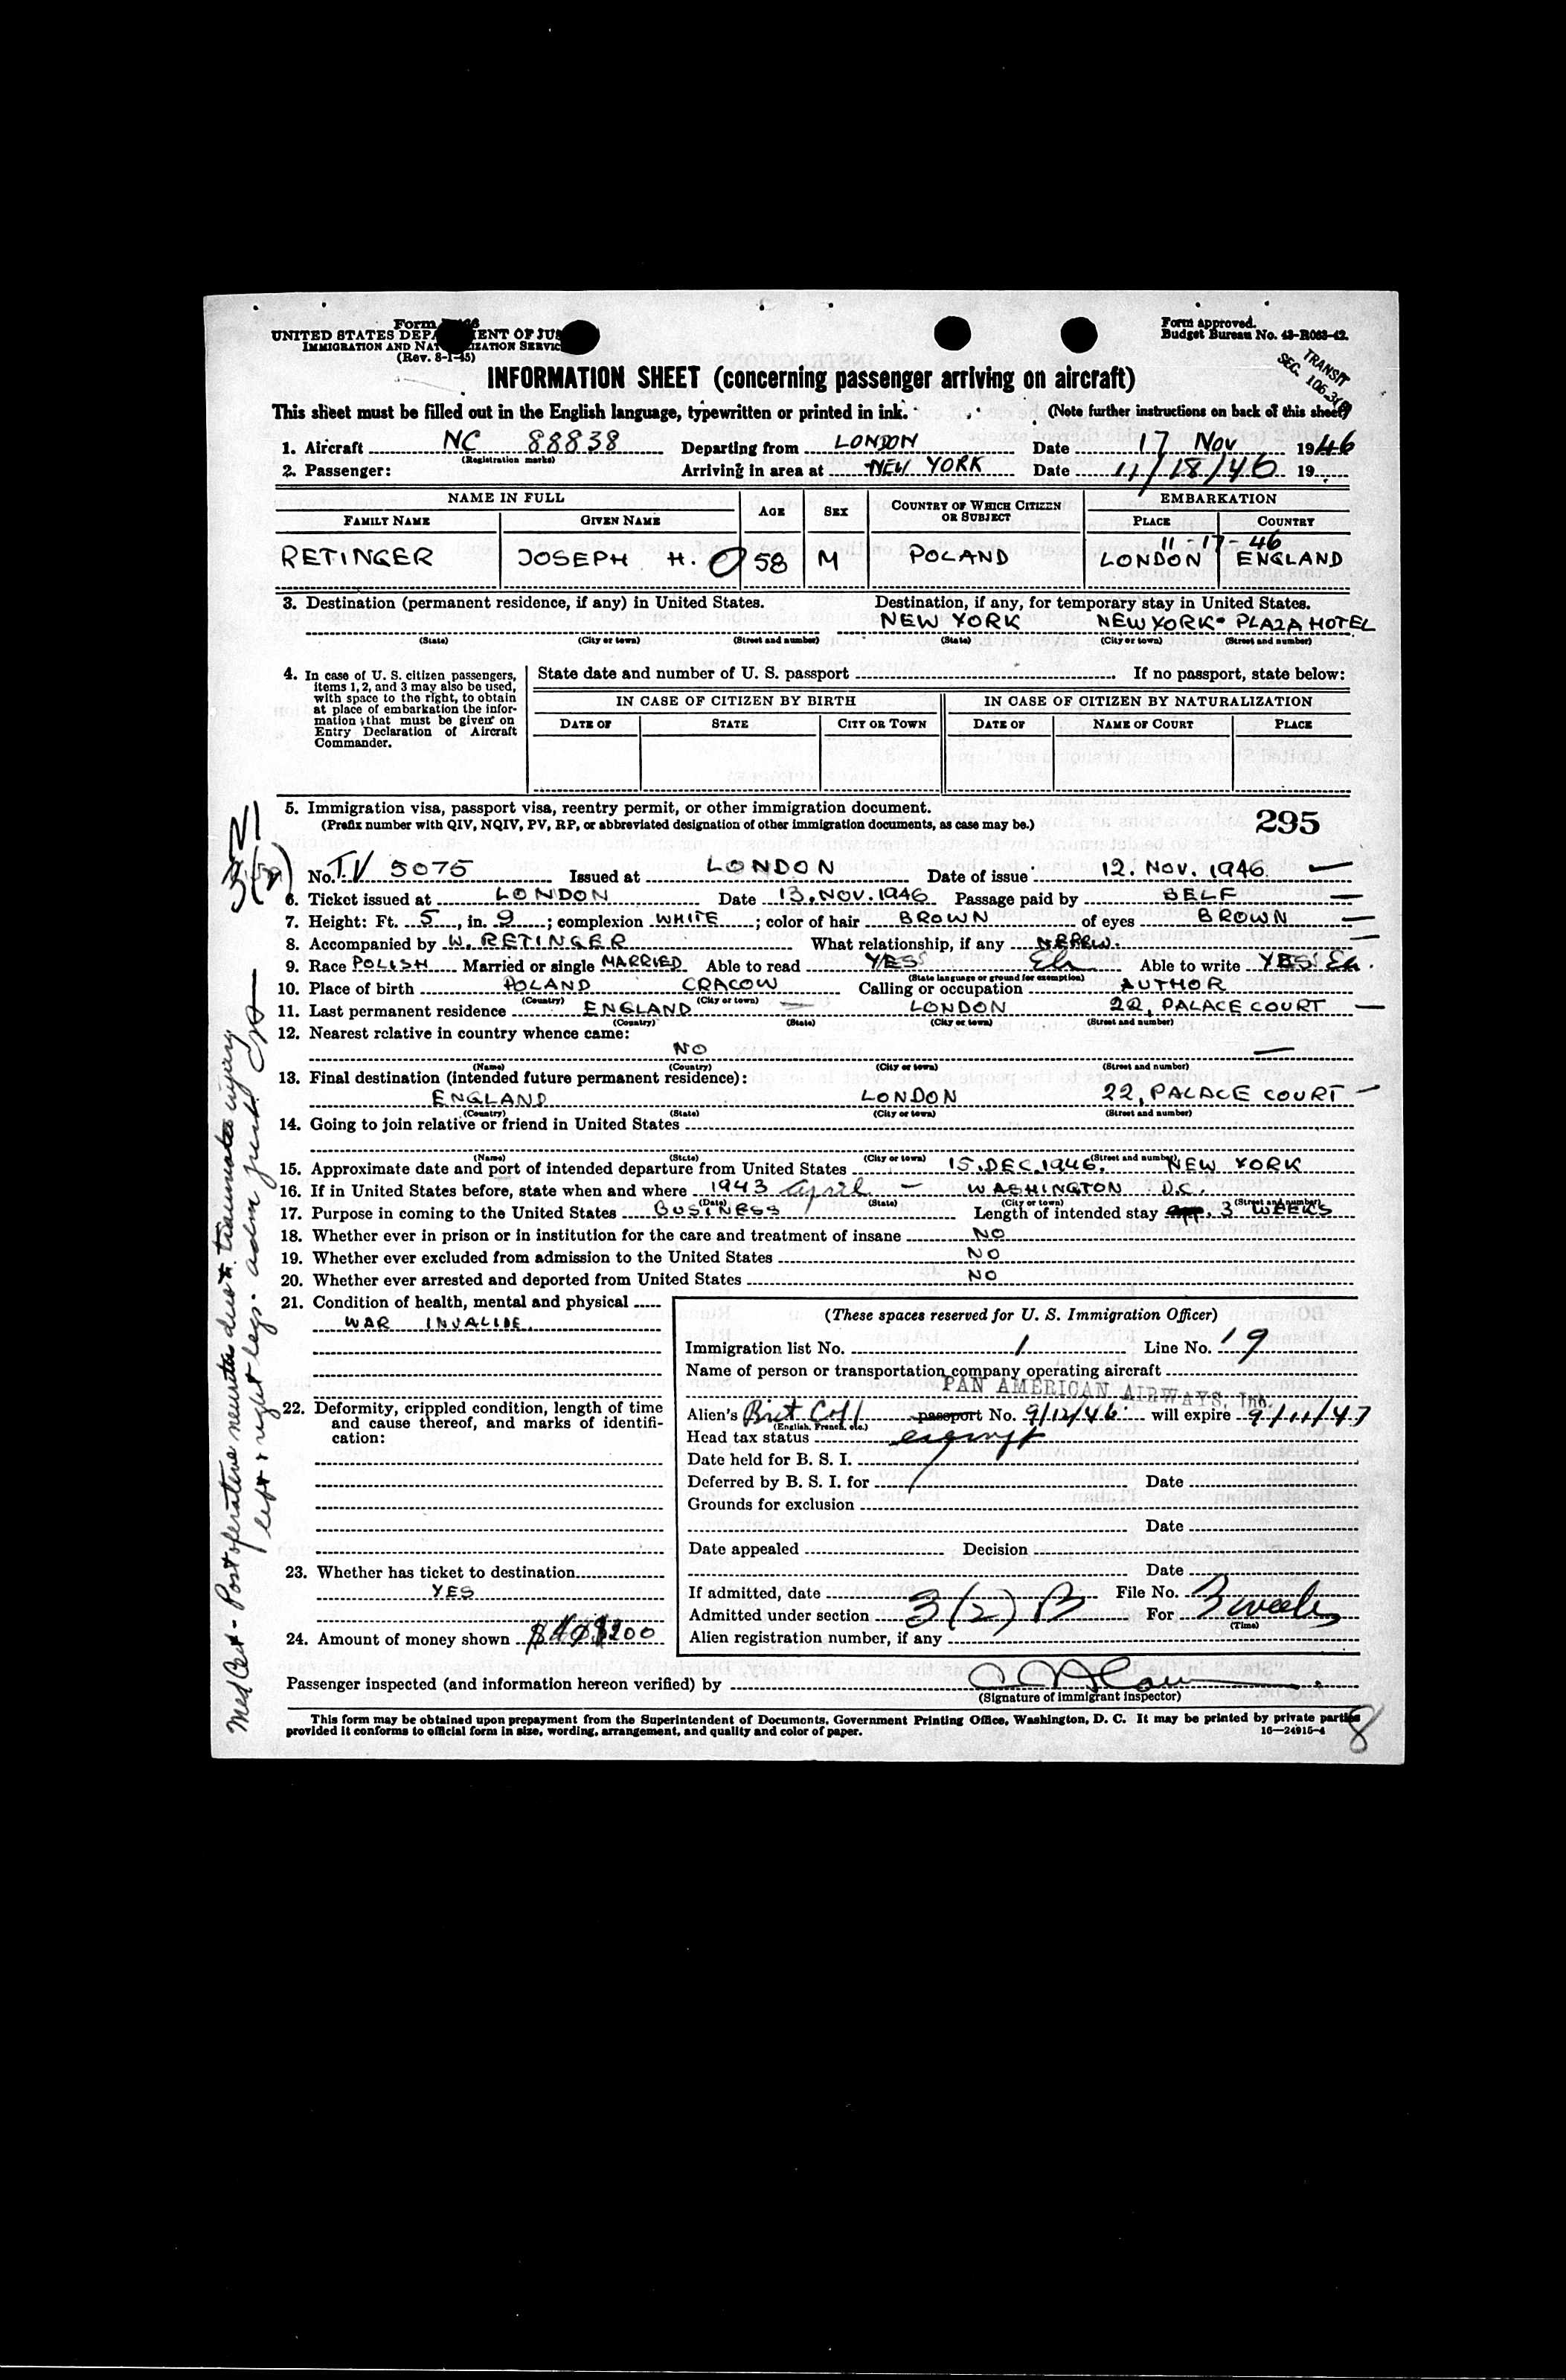 Form
UNITED STATES DEPA ENT OF JUS
IMMIGRATION AND NAT IZATION SERVIC
(Rev. 8-1-45)
Form approved.
Budget Bureau No. 43-R063-42.
TRANSIT
INFORMATION SHEET (concerning passenger arriving on aircraft)
This sheet must be filled out in the English language, typewritten or printed in ink. (Note further instructions on back of this sheet)
1. Aircraft NC 88838 Departing from LONDON Date 17 Nov 1946
(Registration marks)
2. Passenger: Arriving in area at NEW YORK Date 11/18/46 19
NAME IN FULL AGE SEX COUNTRY OF WHICH CITIZEN OR SUBJECT EMBARKATION
FAMILY NAME GIVEN NAME PLACE COUNTRY
11-17-46
RETINGER JOSEPH H. 58 M POLAND LONDON ENGLAND
3. Destination (permanent residence, if any) in United States. Destination, if any, for temporary stay in United States.
NEW YORK NEW YORK PLAZA HOTEL
(State) (City or town) (Street and number) (State) (City or town) (Street and number)
4. In case of U. S. citizen passengers, items 1, 2, and 3 may also be used, with space to the right, to obtain at place of embarkation the information that must be given on Entry Declaration of Aircraft Commander.
State date and number of U. S. passport If no passport, state below:
IN CASE OF CITIZEN BY BIRTH IN CASE OF CITIZEN BY NATURALIZATION
DATE OF STATE CITY OR TOWN DATE OF NAME OF COURT PLACE
5. Immigration visa, passport visa, reentry permit, or other immigration document.
(Prefix number with QIV, NQIV, PV, RP, or abbreviated designation of other immigration documents, as case may be.)
295
No. TV 5075 Issued at LONDON Date of issue 12. NOV. 1946
6. Ticket issued at LONDON Date 13. NOV. 1946 Passage paid by SELF
7. Height: Ft. 5, in. 9; complexion WHITE; color of hair BROWN of eyes BROWN
8. Accompanied by W. RETINGER What relationship, if any NEPEW.
9. Race POLISH Married or single MARRIED Able to read YES Able to write YES
(State language or ground for exemption)
10. Place of birth POLAND CRACOW Calling or occupation AUTHOR
(Country) (City or town)
11. Last permanent residence ENGLAND LONDON 22, PALACE COURT
(Country) (State) (City or town) (Street and number)
12. Nearest relative in country whence came:
NO
(Name) (Country) (City or town) (Street and number)
13. Final destination (intended future permanent residence):
ENGLAND LONDON 22, PALACE COURT
(Country) (State) (City or town) (Street and number)
14. Going to join relative or friend in United States
(Name) (State) (City or town) (Street and number)
15. Approximate date and port of intended departure from United States 15. DEC. 1946. NEW YORK
16. If in United States before, state when and where 1943 April - WASHINGTON D.C.
(Date) (State) (City or town) (Street and number)
17. Purpose in coming to the United States BUSINESS Length of intended stay app. 3 WEEKS
18. Whether ever in prison or in institution for the care and treatment of insane NO
19. Whether ever excluded from admission to the United States NO
20. Whether ever arrested and deported from United States NO
21. Condition of health, mental and physical
WAR INVALIDE
22. Deformity, crippled condition, length of time and cause thereof, and marks of identification:
23. Whether has ticket to destination
YES
24. Amount of money shown $200
(These spaces reserved for U. S. Immigration Officer)
Immigration list No. 1 Line No. 19
Name of person or transportation company operating aircraft
PAN AMERICAN AIRWAYS, Inc.
Alien's Brit Coff passport No. 9/12/46 will expire 9/11/47
(English, French, etc.)
Head tax status exempt
Date held for B. S. I.
Deferred by B. S. I. for Date
Grounds for exclusion
Date
Date appealed Decision
Date
If admitted, date File No.
Admitted under section 3(2) B For 3 weeks
(Time)
Alien registration number, if any
Passenger inspected (and information hereon verified) by
(Signature of immigrant inspector)
This form may be obtained upon prepayment from the Superintendent of Documents, Government Printing Office, Washington, D. C. It may be printed by private parties
provided it conforms to official form in size, wording, arrangement, and quality and color of paper. 16—24915-4
8
Med Cert - Post operative neuritis due to traumatic injury
left & right legs.